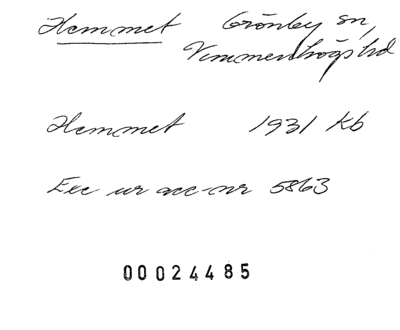 Hemmet Grönby sn,
Vemmenhögs hd
Hemmet 1931 kb
Exc ur acc-nr 5863
00024485